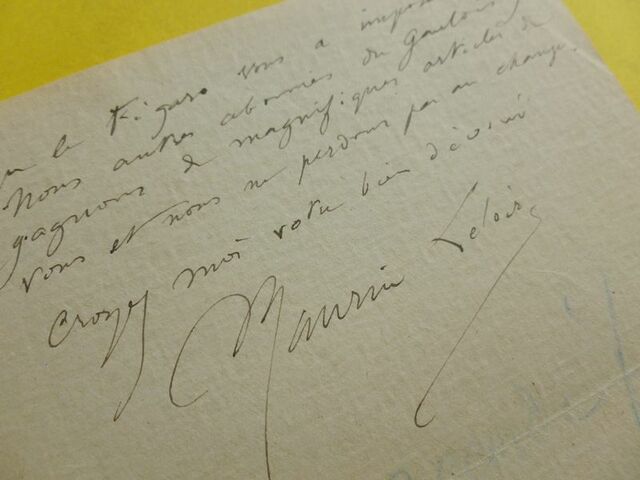 le Figaro vous a
Nous autres abonnés du Gaulois
gagnons de magnifiques articles de
vous et nous ne perdons pas au change.
Croyez moi votre bien dévoué
Maurice Leloir